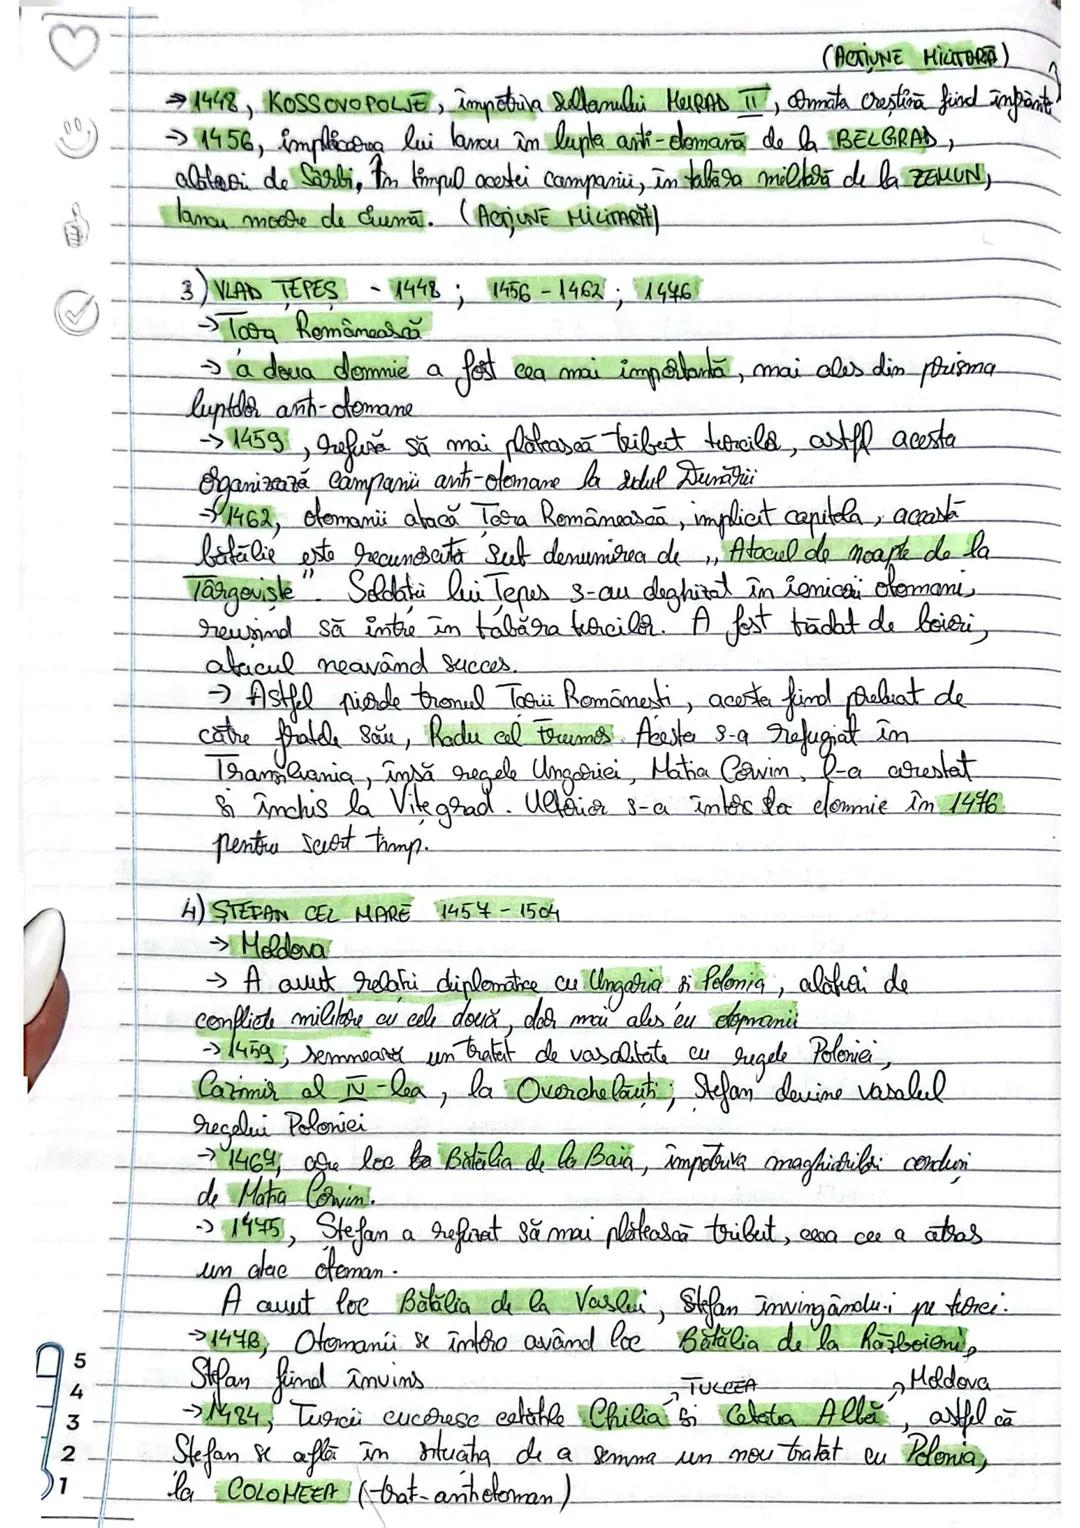 (ACȚIUNE MILITARĂ)
→ 1448, KOSSOVOPOLJE, împotriva Sultanului MURAD II, armata creștină fiind înfrântă
→ 1456, implicarea lui Iancu în lupta anti-otomană de la BELGRAD,
alături de Sârbi, În timpul acestei campanii, în tabăra militară de la ZEMUN,
Iancu moare de ciumă. (ACȚIUNE MILITARĂ)
3) VLAD ȚEPEȘ - 1448 ; 1456 - 1462 ; 1476
→ Țara Românească
→ a doua domnie a fost cea mai importantă, mai ales din prisma
luptelor anti-otomane
→ 1459, refuză să mai plătească tribut turcilor, astfel acesta
organizează campanii anti-otomane la sudul Dunării
→ 1462, otomanii atacă Țara Românească, implicit capitala, această
bătălie este recunoscută sub denumirea de „Atacul de noapte de la
Târgoviște". Soldații lui Țepeș s-au deghizat în ieniceri otomani,
reușind să intre în tabăra turcilor. A fost trădat de boieri,
atacul neavând succes.
→ Astfel pierde tronul Țării Românești, acesta fiind preluat de
către fratele său, Radu cel Frumos. Acesta s-a refugiat în
Transilvania, însă regele Ungariei, Matia Corvin, l-a arestat
și închis la Vișegrad. Ulterior s-a întors la domnie în 1476
pentru scurt timp.
4) ȘTEFAN CEL MARE 1457 - 1504
→ Moldova
→ A avut relații diplomatice cu Ungaria și Polonia, alături de
conflicte militare cu cele două, dar mai ales cu otomanii
→ 1459, semnează un tratat de vasalitate cu regele Poloniei,
Cazimir al IV-lea, la Overchelăuți; Ștefan devine vasalul
regelui Poloniei
→ 1467, are loc la Bătălia de la Baia, împotriva maghiarilor conduși
de Matia Corvin.
→ 1475, Ștefan a refuzat să mai plătească tribut, ceea ce a atras
un atac otoman.
A avut loc Bătălia de la Vaslui, Ștefan învingându-i pe turci.
→ 1476, Otomanii se întorc având loc Bătălia de la Războieni,
Ștefan fiind învins.
TULCEA
Moldova
→ 1484, Turcii cuceresc cetățile Chilia și Cetatea Albă, astfel că
Ștefan se află în situația de a semna un nou tratat cu Polonia,
la COLOMEEA (trat-antiotoman)
5
4
3
2
1